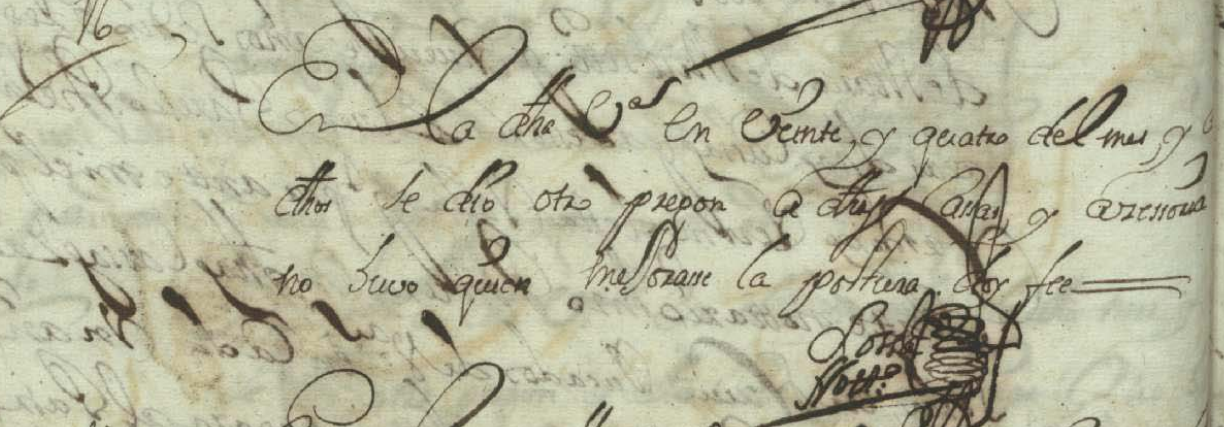 16
En la dha Va en Veinte, y quatro del mes, y
dhos se dio otro pregon a dhas Casas, y
no huvo quien mejorase la postura doy fee
Nottº